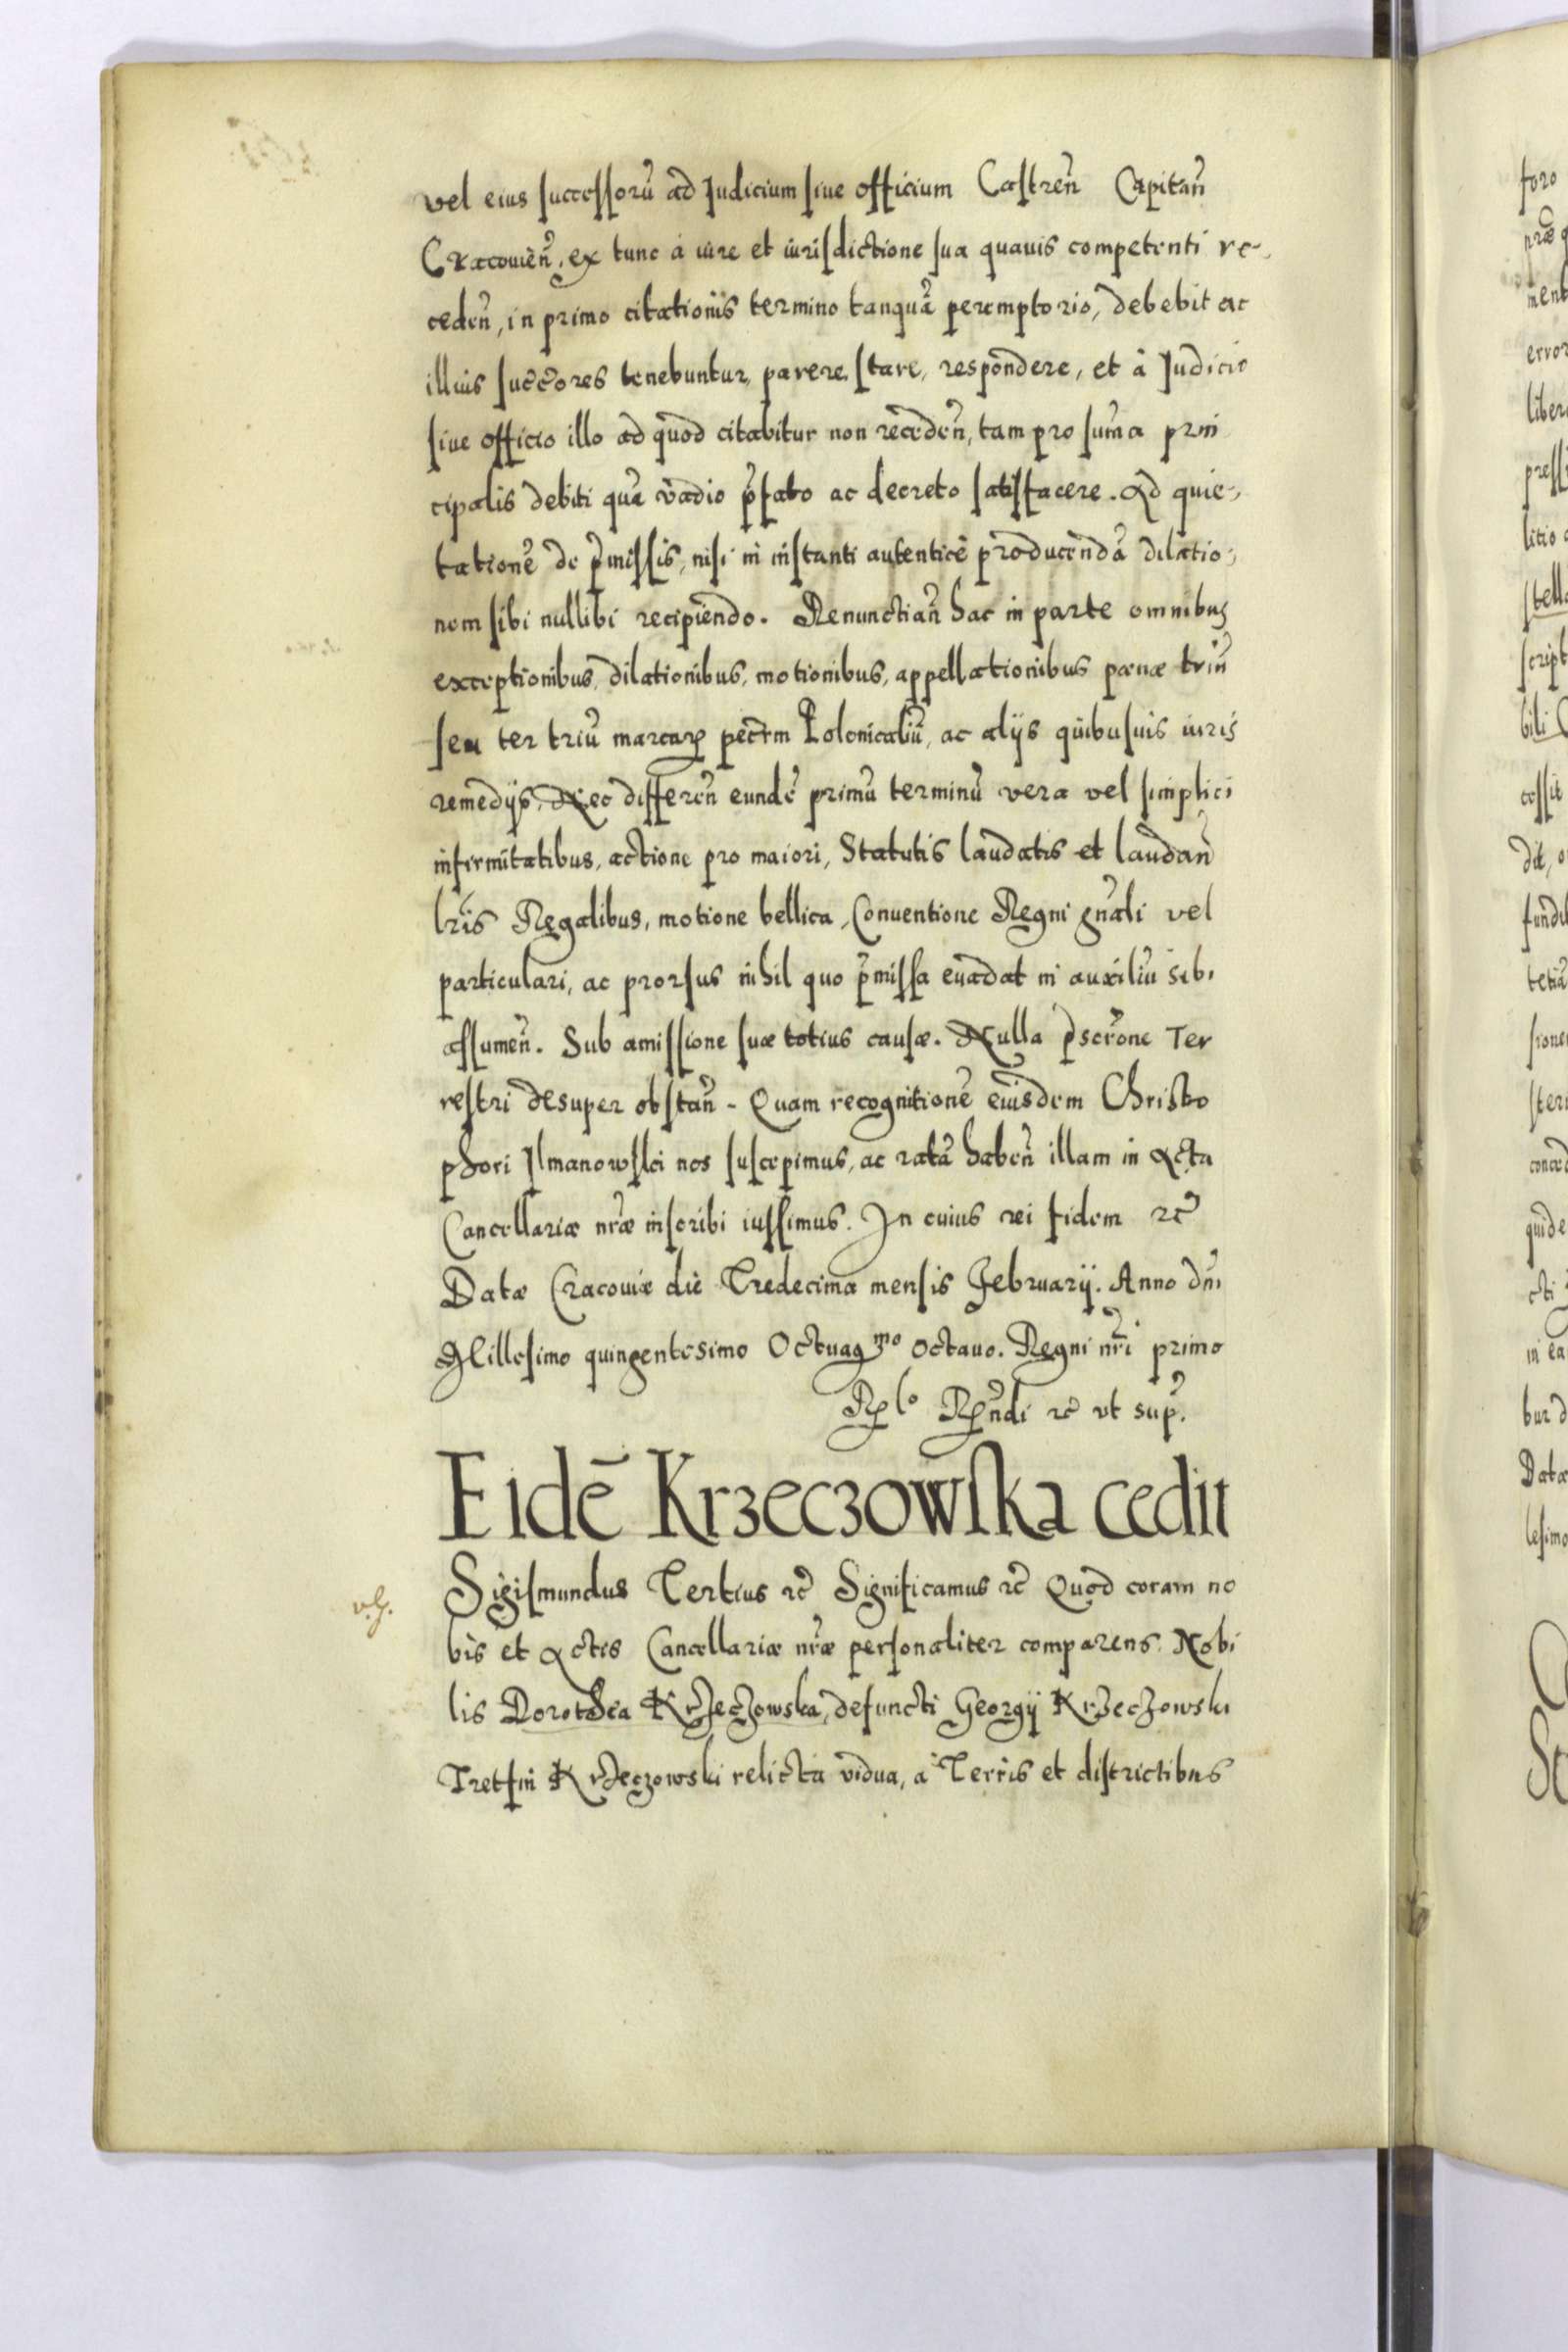 vel eius successorũ ad Judicium siue officium Castreñ Capitañ
Cracouieñ, ex tunc à iure et iurisdictione sua quauis competenti re-
cedeñ, in primo citationis termino tanquã peremptorio, debebit ac
illius succ̃ores tenebuntur, parere, stare, respondere, et à Judicio
siue officio illo ad quod citabitur non recedeñ, tam pro sum̃a prin
cipalis debiti quã vadio p̃fato ac decreto satisfacere. Ad quie-
tationẽ de p̃missis, nisi in instanti autenticè producendã dilatio-
nem sibi nullibi recipiendo. Renunctiañ hac in parte omnibus
exceptionibus, dilationibus, motionibus, appellationibus pœnæ triũ
seu ter triũ marcarꝝ pec̃rm Polonicaliũ, ac alijs quibusuis iuris
remedijs, Nec differeñ eundẽ primũ terminũ vera vel simplici
infirmitatibus, actione pro maiori, Statutis laudatis et laudañ
lr̃is Regalibus, motione bellica, Conuentione Regni gñali vel
particulari, ac prorsus nihil quo p̃missa euadat in auxiliũ sibi
assumeñ. Sub amissione suæ totius causæ. Nulla p̃scr̃one Ter
restri desuper obstañ - Quam recognitionẽ eiusdem Christo
phori Ilmanowski nos suscepimus, ac ratã habeñ illam in Acta
Cancellariæ nr̃æ inscribi iussimus. In cuius rei fidem ꝛc̃
Datæ Cracouiæ die Tredecima mensis February. Anno dñi
Millesimo quingentesimo Octuagᵐᵒ octauo. Regni nr̃i primo
Rꝑˡᵒ Rꝑñdi ꝛc̃ vt sup̃.
Eidẽ Krzeczowska cedit
Sigismundus Tertius ꝛc̃ Significamus ꝛc̃ Quod coram no
bis et Actis Cancellariæ nr̃æ personaliter comparens Nobi
lis Dorothea Krzeczowska, defuncti Georgij Krzeczowski
Tretfin Krzeczowski relicta vidua, à Terris et districtibus